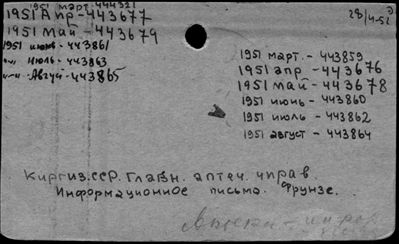 1951 март. 444321
1951 Апр - 443677
1951 Май - 443679
1951 июнь - 443861
"-" июль - 443863
"-" Авгус - 443865
28/4-52
1951 март. - 443859
1951 апр - 443676
1951 май - 443678
1951 июнь - 443860
1951 июль - 443862
1951 август - 443864
Киргиз. ССР. Главн. аптеч. управ.
Информационное письмо. Фрунзе.